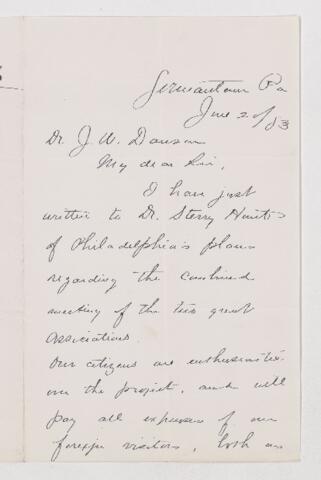 Germantown Pa
June 20/83
Dr. J. W. Dawson
My dear Sir,
I have just
written to Dr. Sterry Hunt
of Philadelphia's plans
regarding the combined
meeting of the two great
associations.
Our citizens are enthusiastic
over the project, and will
pay all expenses of our
foreign visitors, both as